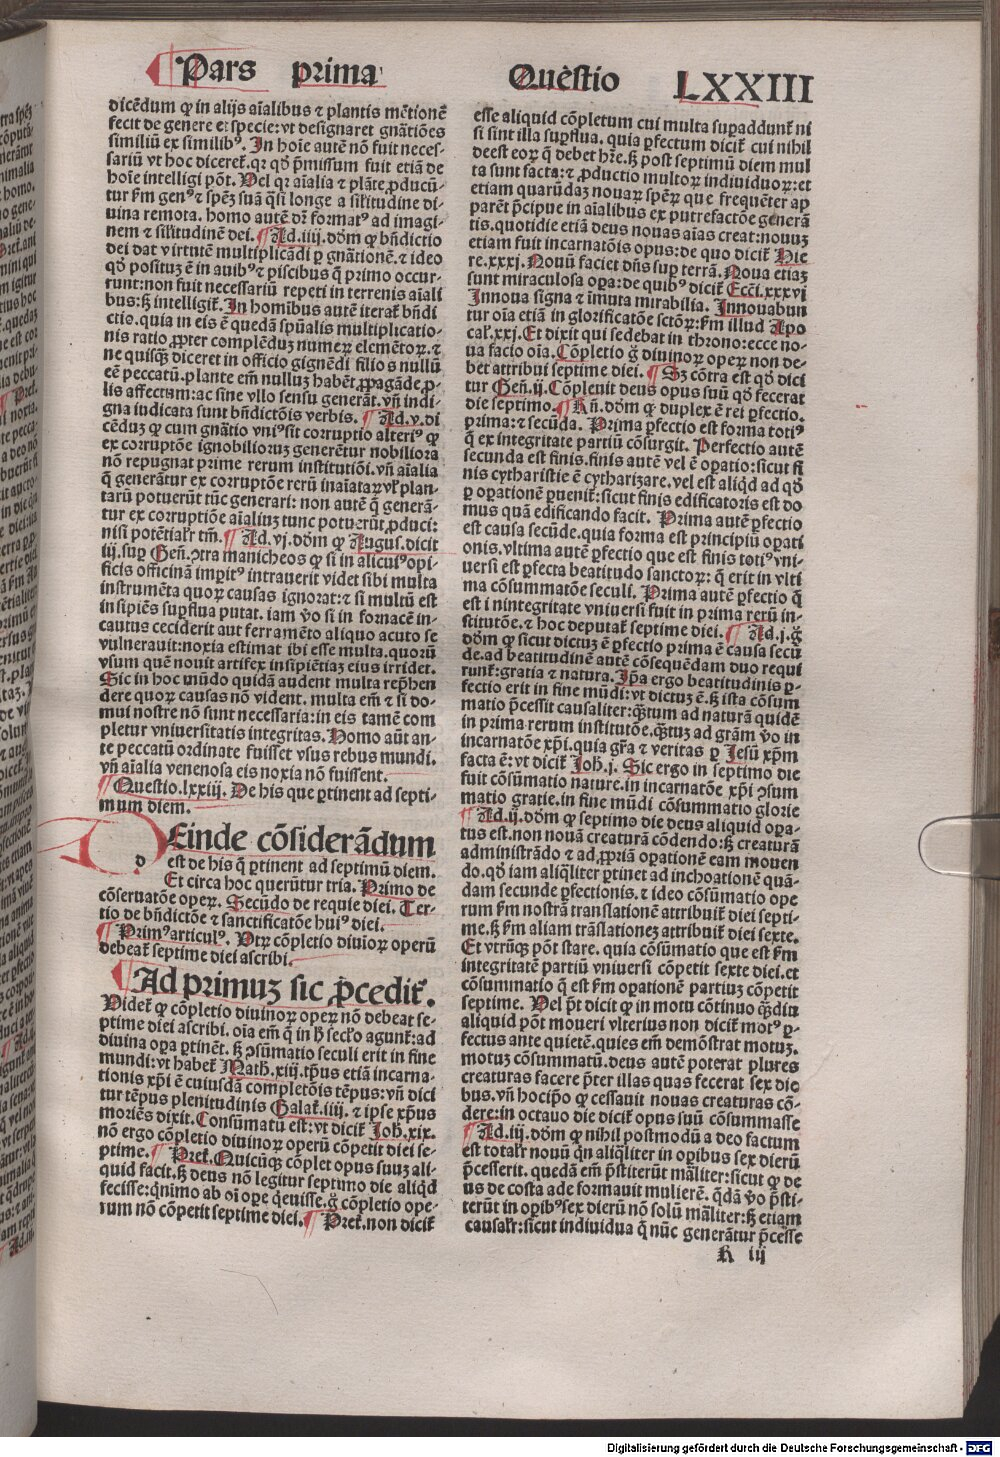 Pars prima Questio LXXIII
dicēdum ꝙ in alijs aīalibus ⁊ plantis mētionē
fecit de genere et specie: vt designaret gn̄atiōes
similiū ex similibꝰ. In hoīe autē nō fuit neces-
sariū vt hoc diceret᷑. qꝛ qd̓ p̄missum fuit etiā de
hoīe intelligi pōt. Vel qꝛ aīalia ⁊ plāte ꝓducū-
tur ẜm genꝰ ⁊ spēꝫ suā q̄si longe a sil̓itudine di-
uina remota. homo autē dr̄ formatꝰ ad imagi-
nem ⁊ sil̓itudinē dei. ¶ Ad.iiij. dōm ꝙ bn̄dictio
dei dat virtutē multiplicādi ꝑ gn̄ationē. ⁊ ideo
qd̓ posituꝫ ē in auibꝰ ⁊ piscibus q̄ primo occur-
runt: non fuit necessariū repeti in terrenis aīali
bus: sꝫ intelligit᷑. In homibus autē iterat᷑ bn̄di
ctio. quia in eis ē quedā spūalis multiplicatio-
nis ratio ꝓpter complēduꝫ numeꝝ elemētoꝝ. ⁊
ne quisqꝫ diceret in officio gignēdi filios nullū
eē peccatū. plante em̄ nulluꝫ habēt ꝓpagāde ꝓ-
lis affectum: ac sine vllo sensu generāt. vn̄ indi-
gna iudicata sunt bn̄dictōis verbis. ¶ Ad.v. di
cēduꝫ ꝙ cum gn̄atio vniꝰ sit corruptio alteriꝰ ꝙ
ex corruptōe ignobilioruꝫ generētur nobiliora
nō repugnat prime rerum institutiōi. vn̄ aīalia
q̄ generātur ex corruptōe rerū inaīataꝝ vl̓ plan-
tarū potuerūt tūc generari: non autē q̄ generā-
tur ex corruptiōe aīaliuꝫ tunc potuerūt ꝓduci:
nisi potētial̓r tm̄. ¶ Ad.vj. dōm ꝙ Augus. dicit
iij. sup Gen̄. ↄtra manicheos ꝙ si in alicuiꝰ opi-
ficis officinā imꝑitꝰ intrauerit videt sibi multa
instrumēta quoꝝ causas ignorat: ⁊ si multū est
insipiēs supflua putat. iam v̓o si in fornacē in-
cautus ceciderit aut ferramēto aliquo acuto se
vulnerauit: noxia estimat ibi esse multa. quorū
vsum quē nouit artifex insipiētiaꝫ eius irridet.
Sic in hoc mūdo quidā audent multa rep̄hen
dere quoꝝ causas nō vident. multa em̄ ⁊ si do-
mui nostre nō sunt necessaria: in eis tamē com
pletur vniuersitatis integritas. Homo aūt an-
te peccatū ordinate fuisset vsus rebus mundi.
vn̄ aīalia venenosa eis noxia nō fuissent.
¶ Questio.lxxiij. De his que ꝑtinent ad septi-
mum diem.
d Einde cōsiderādum
est de his q̄ ꝑtinent ad septimū diem.
Et circa hoc querūtur tria. Primo de
cōseruatōe opeꝝ. Secūdo de requie diei. Ter-
tio de bn̄dictōe ⁊ sanctificatōe huiꝰ diei.
¶ Primꝰ articulꝰ. Vtꝝ cōpletio diuioꝝ operū
debeat᷑ septime diei ascribi.
¶ Ad primuꝫ sic p̄cedit᷑.
Videt᷑ ꝙ cōpletio diuinoꝝ opeꝝ nō debeat se-
ptime diei ascribi. oīa em̄ q̄ in h̓ sec̄lo agunt᷑: ad
diuina oꝑa ꝑtinēt. sꝫ ↄsūmatio seculi erit in fine
mundi: vt habet᷑ Math.xiij. tp̄us etiā incarna-
tionis xp̄i ē cuiusdā completōis tēpus: vn̄ dici
tur tēpus plenitudinis Galat᷑.iiij. ⁊ ipse xp̄us
moriēs dixit. Consūmatū est: vt dicit᷑ Joh̄.xix.
nō ergo cōpletio diuinoꝝ operū cōpetit diei se-
ptime. ¶ Pret᷑. Quicūqꝫ cōplet opus suuꝫ ali-
quid facit. sꝫ deus nō legitur septimo die aliqd̓
fecisse: qn̄imo ab oī oꝑe q̄euisse. g̊ cōpletio ope-
rum nō cōpetit septime diei. ¶ Pret᷑. non dicit᷑
esse aliquid cōpletum cui multa supaddunt᷑ ni
si sint illa supflua. quia ꝑfectum dicit᷑ cui nihil
deest eoꝝ q̄ debet hr̄e. sꝫ post septimū diem mul
ta sunt facta: ⁊ ꝓductio multoꝝ indiuiduoꝝ: et
etiam quarūdaꝫ nouaꝝ spēꝝ que frequēter ap
parēt p̄cipue in aīalibus ex putrefactōe generā
tis. quotidie etiā deus nouas aīas creat: nouuꝫ
etiam fuit incarnatōis opus: de quo dicit᷑ Hie
re.xxxj. Nouū faciet dn̄s sup̄ terrā. Noua etiaꝫ
sunt miraculosa oꝑa: de quibꝰ dicit᷑ Eccī.xxxvj
Innoua signa ⁊ īmuta mirabilia. Innouabun
tur oīa etiā in glorificatōe sctōꝝ: ẜm illud Apo
cal̓.xxj. Et dixit qui sedebat in throno: ecce no-
ua facio oīa. Cōpletio g̊ diuinoꝝ opeꝝ non de-
bet attribui septime diei. ¶ Sꝫ cōtra est qd̓ dici
tur Gen̄.ij. Cōpleuit deus opus suū qd̓ fecerat
die septimo. ¶ Rn̄. dōm ꝙ duplex ē rei ꝑfectio.
prima: ⁊ secūda. Prima ꝑfectio est forma totiꝰ
q̄ ex integritate partiū cōsurgit. Perfectio autē
secunda est finis. finis autē vel ē oꝑatio: sicut fi
nis cytharistie ē cytharizare. vel est aliqd̓ ad qd̓
ꝑ oꝑationē ꝑuenit᷑: sicut finis edificatoris est do
mus quā edificando facit. Prima autē ꝑfectio
est causa secūde. quia forma est principiū oꝑati
onis. vltima autē ꝑfectio que est finis totiꝰ vni-
uersi est ꝑfecta beatitudo sanctoꝝ: q̄ erit in vlti
ma cōsummatōe seculi. Prima autē ꝑfectio q̄
est i nintegritate vniuersi fuit in prima rerū in-
stitutōe. ⁊ hoc deputat᷑ septime diei. ¶ Ad.j. g̊
dōm ꝙ sicut dictuꝫ ē ꝑfectio prima ē causa secū
de. ad beatitudinē autē cōsequēdam duo requi
runt᷑: gratia ⁊ natura. Ip̄a ergo beatitudinis ꝑ-
fectio erit in fine mūdi: vt dictuꝫ ē. sꝫ ista cōsum
matio p̄cessit causaliter: qꝫtum ad naturā quidē
in prima rerum institutōe. qꝫtuꝫ ad grām v̓o in
incarnatōe xp̄i. quia gr̄a ⁊ veritas ꝑ Jesū xp̄m
facta ē: vt dicit᷑ Joh̄.j. Sic ergo in septimo die
fuit cōsūmatio nature. in incarnatōe xp̄i ↄsum
matio gratie. in fine mūdi cōsummatio glorie
¶ Ad.ij. dōm ꝙ septimo die deus aliquid oꝑa-
tus est. non nouā creaturā cōdendo: sꝫ creaturā
administrādo ⁊ ad ꝓpriā oꝑationē eam mouen
do. qd̓ iam aliqͣliter ꝑtinet ad inchoationē quā-
dam secunde ꝑfectionis. ⁊ ideo cōsūmatio ope
rum ẜm nostrā translationē attribuit᷑ diei septi-
me. sꝫ ẜm aliam trāslationeꝫ attribuit᷑ diei sexte.
Et vtrūqꝫ pōt stare. quia cōsūmatio que est ẜm
integritatē partiū vniuersi cōpetit sexte diei. et
cōsummatio q̄ est ẜm oꝑationē partiuꝫ cōpetit
septime. Vel p̄t dicit ꝙ in motu cōtinuo qꝫdiu
aliquid pōt moueri vlterius non dicit᷑ motꝰ ꝑ-
fectus ante quietē. quies em̄ demōstrat motuꝫ.
motuꝫ cōsummatū. deus autē poterat plures
creaturas facere p̄ter illas quas fecerat sex die
bus. vn̄ hocip̄o ꝙ cessauit nouas creaturas cō-
dere: in octauo die dicit᷑ opus suū cōsummasse
¶ Ad.iij. dōm ꝙ nihil postmodū a deo factum
est total̓r nouū qn̄ aliqͣliter in oꝑibus sex dierū
p̄cesserit. quedā em̄ p̄stiterūt māliter: sicut ꝙ de
us de costa ade formauit mulierē. q̄dā v̓o p̄sti-
terūt in oꝑibꝰ sex dierū nō solū māliter: sꝫ etiam
causal̓r: sicut indiuidua q̄ nūc generātur p̄cesse
K iij
Digitalisierung gefördert durch die Deutsche Forschungsgemeinschaft - DFG